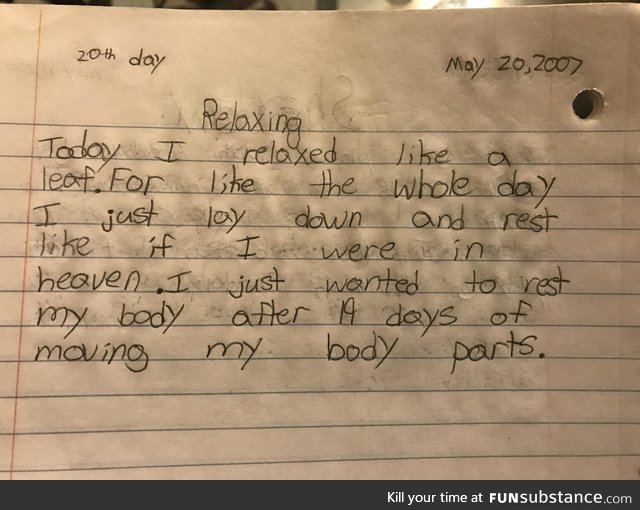 20th day
May 20, 2007
Relaxing
Today I relaxed like a
leaf. For like the whole day
I just lay down and rest
like if I were in
heaven. I just wanted to rest
my body after 19 days of
moving my body parts.
Kill your time at FUNsubstance.com